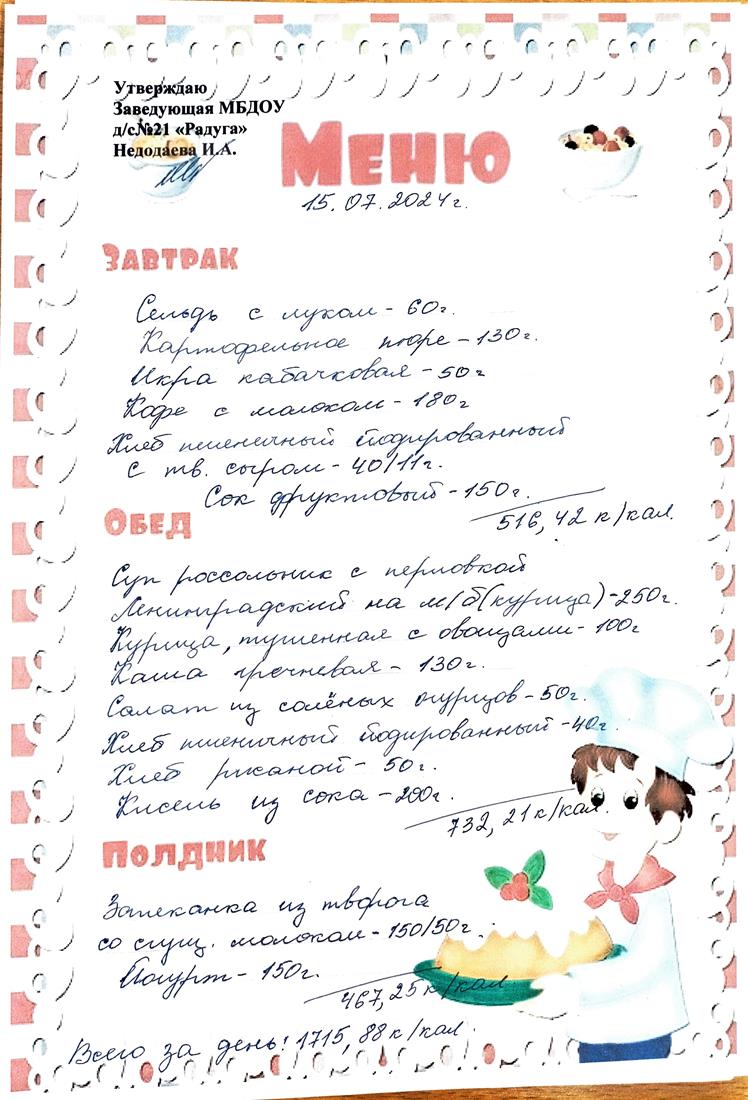 Утверждаю
Заведующая МБДОУ
д/с№21 «Радуга»
Недодаева И.А.
Меню
15.07.2024г.
Завтрак
Сельдь с луком - 60г.
Картофельное пюре - 130г.
Икра кабачковая - 50г
Кофе с молоком - 180г
Хлеб пшеничный йодированный
с тв. сыром - 40/11г.
Сок фруктовый - 150г.
516,42 к/кал.
Обед
Суп россольник с перловкой
Ленинградский на м/б (курица) - 250г.
Курица, тушенная с овощами - 100г
Каша гречневая - 130г.
Салат из солёных огурцов - 50г.
Хлеб пшеничный йодированный - 40г.
Хлеб ржаной - 50г.
Кисель из сока - 200г.
732,21 к/кал.
Полдник
Запеканка из творога
со сгущ. молоком - 150/50г.
Йогурт - 150г.
467,25 к/кал
Всего за день: 1715,88 к/кал.